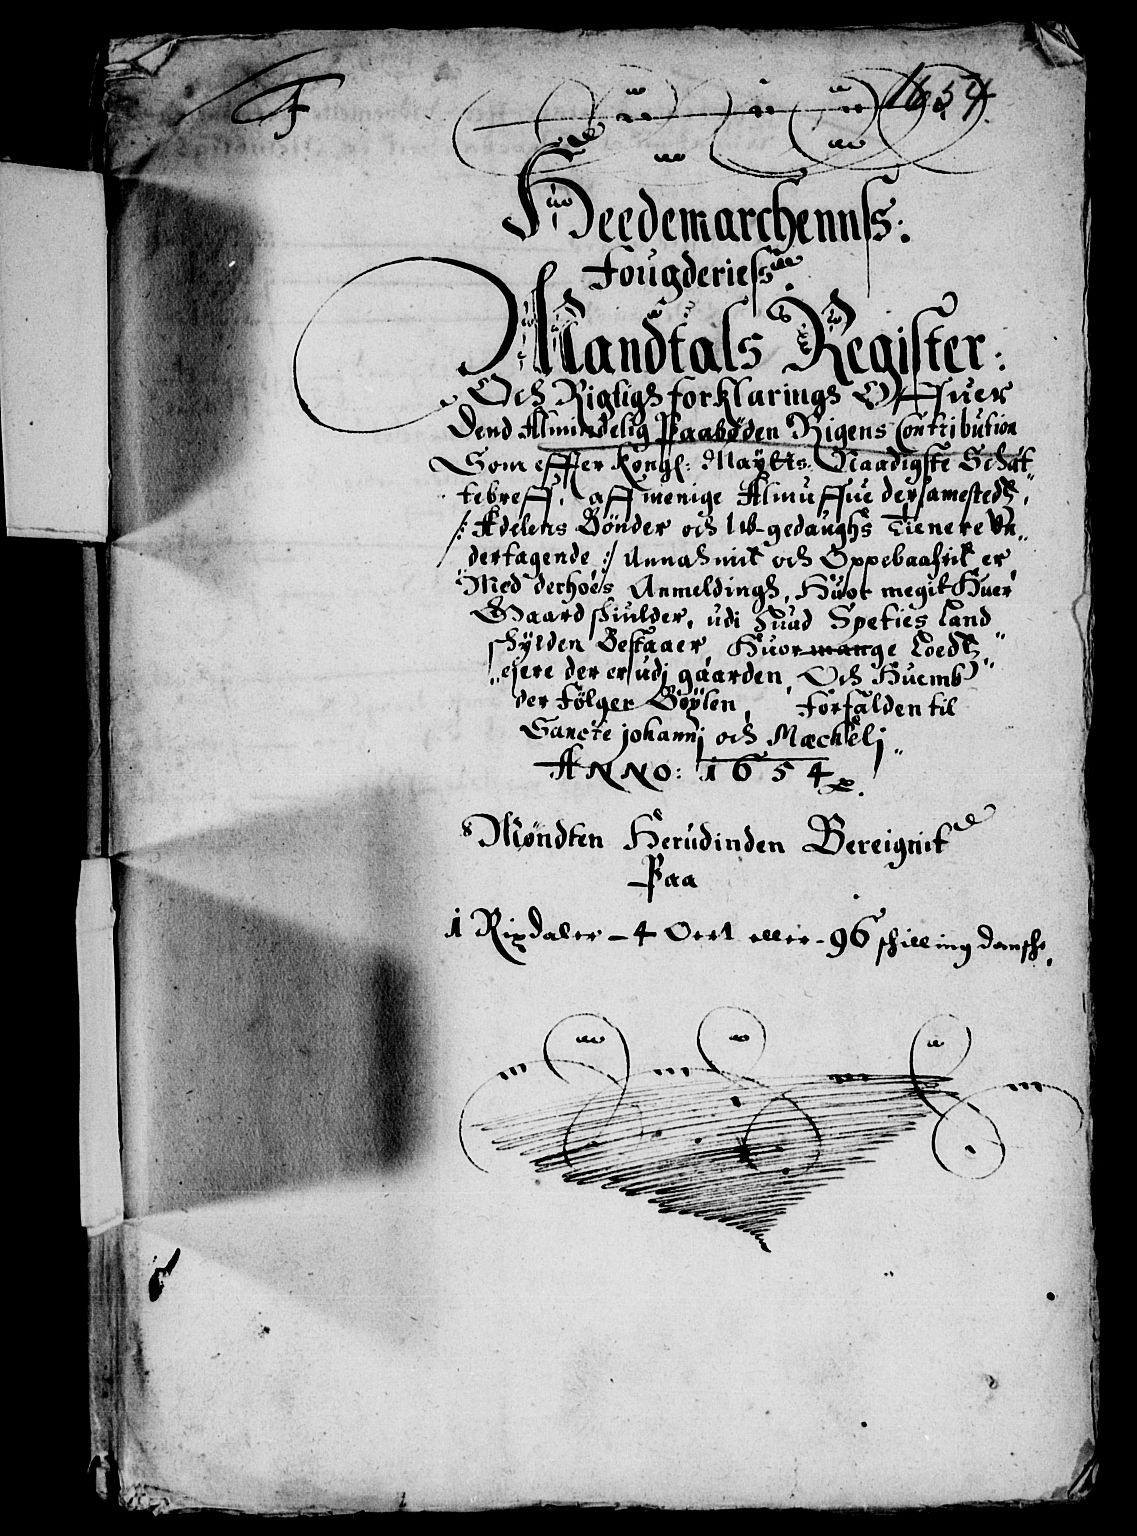 F
1654.
Heedemarchennss:
Fougderiess
Mandtals Register:
Och Rigligh forklarings Offuer
Dend Almindelig Paabøden Rigens Contribution
Som effter Kongl: Maÿtts: Naadigste Schat-
tebreff, aff menige Almuffue dersamestedtz,
/: Adelens Bønder och Ugedaughs Tienere Un-
dertagende :/ Annammit och Oppebaafrit er,
Med derhoes Anmeldingh, Huor megit Huer
Gaard schiulder, udi huad Speties Land
schÿlden Bestaaer, Huor mange Loedtz
ejere der er udj gaarden, Och Huemb
der Følger Bøxlen, Forfalden til
Sancte johannj och Mæchelj
ANNO: 1654
Møndten Herudinden Bereignit
Paa
1 Rixdaler - 4 Oert eller - 96 schilling dansche.